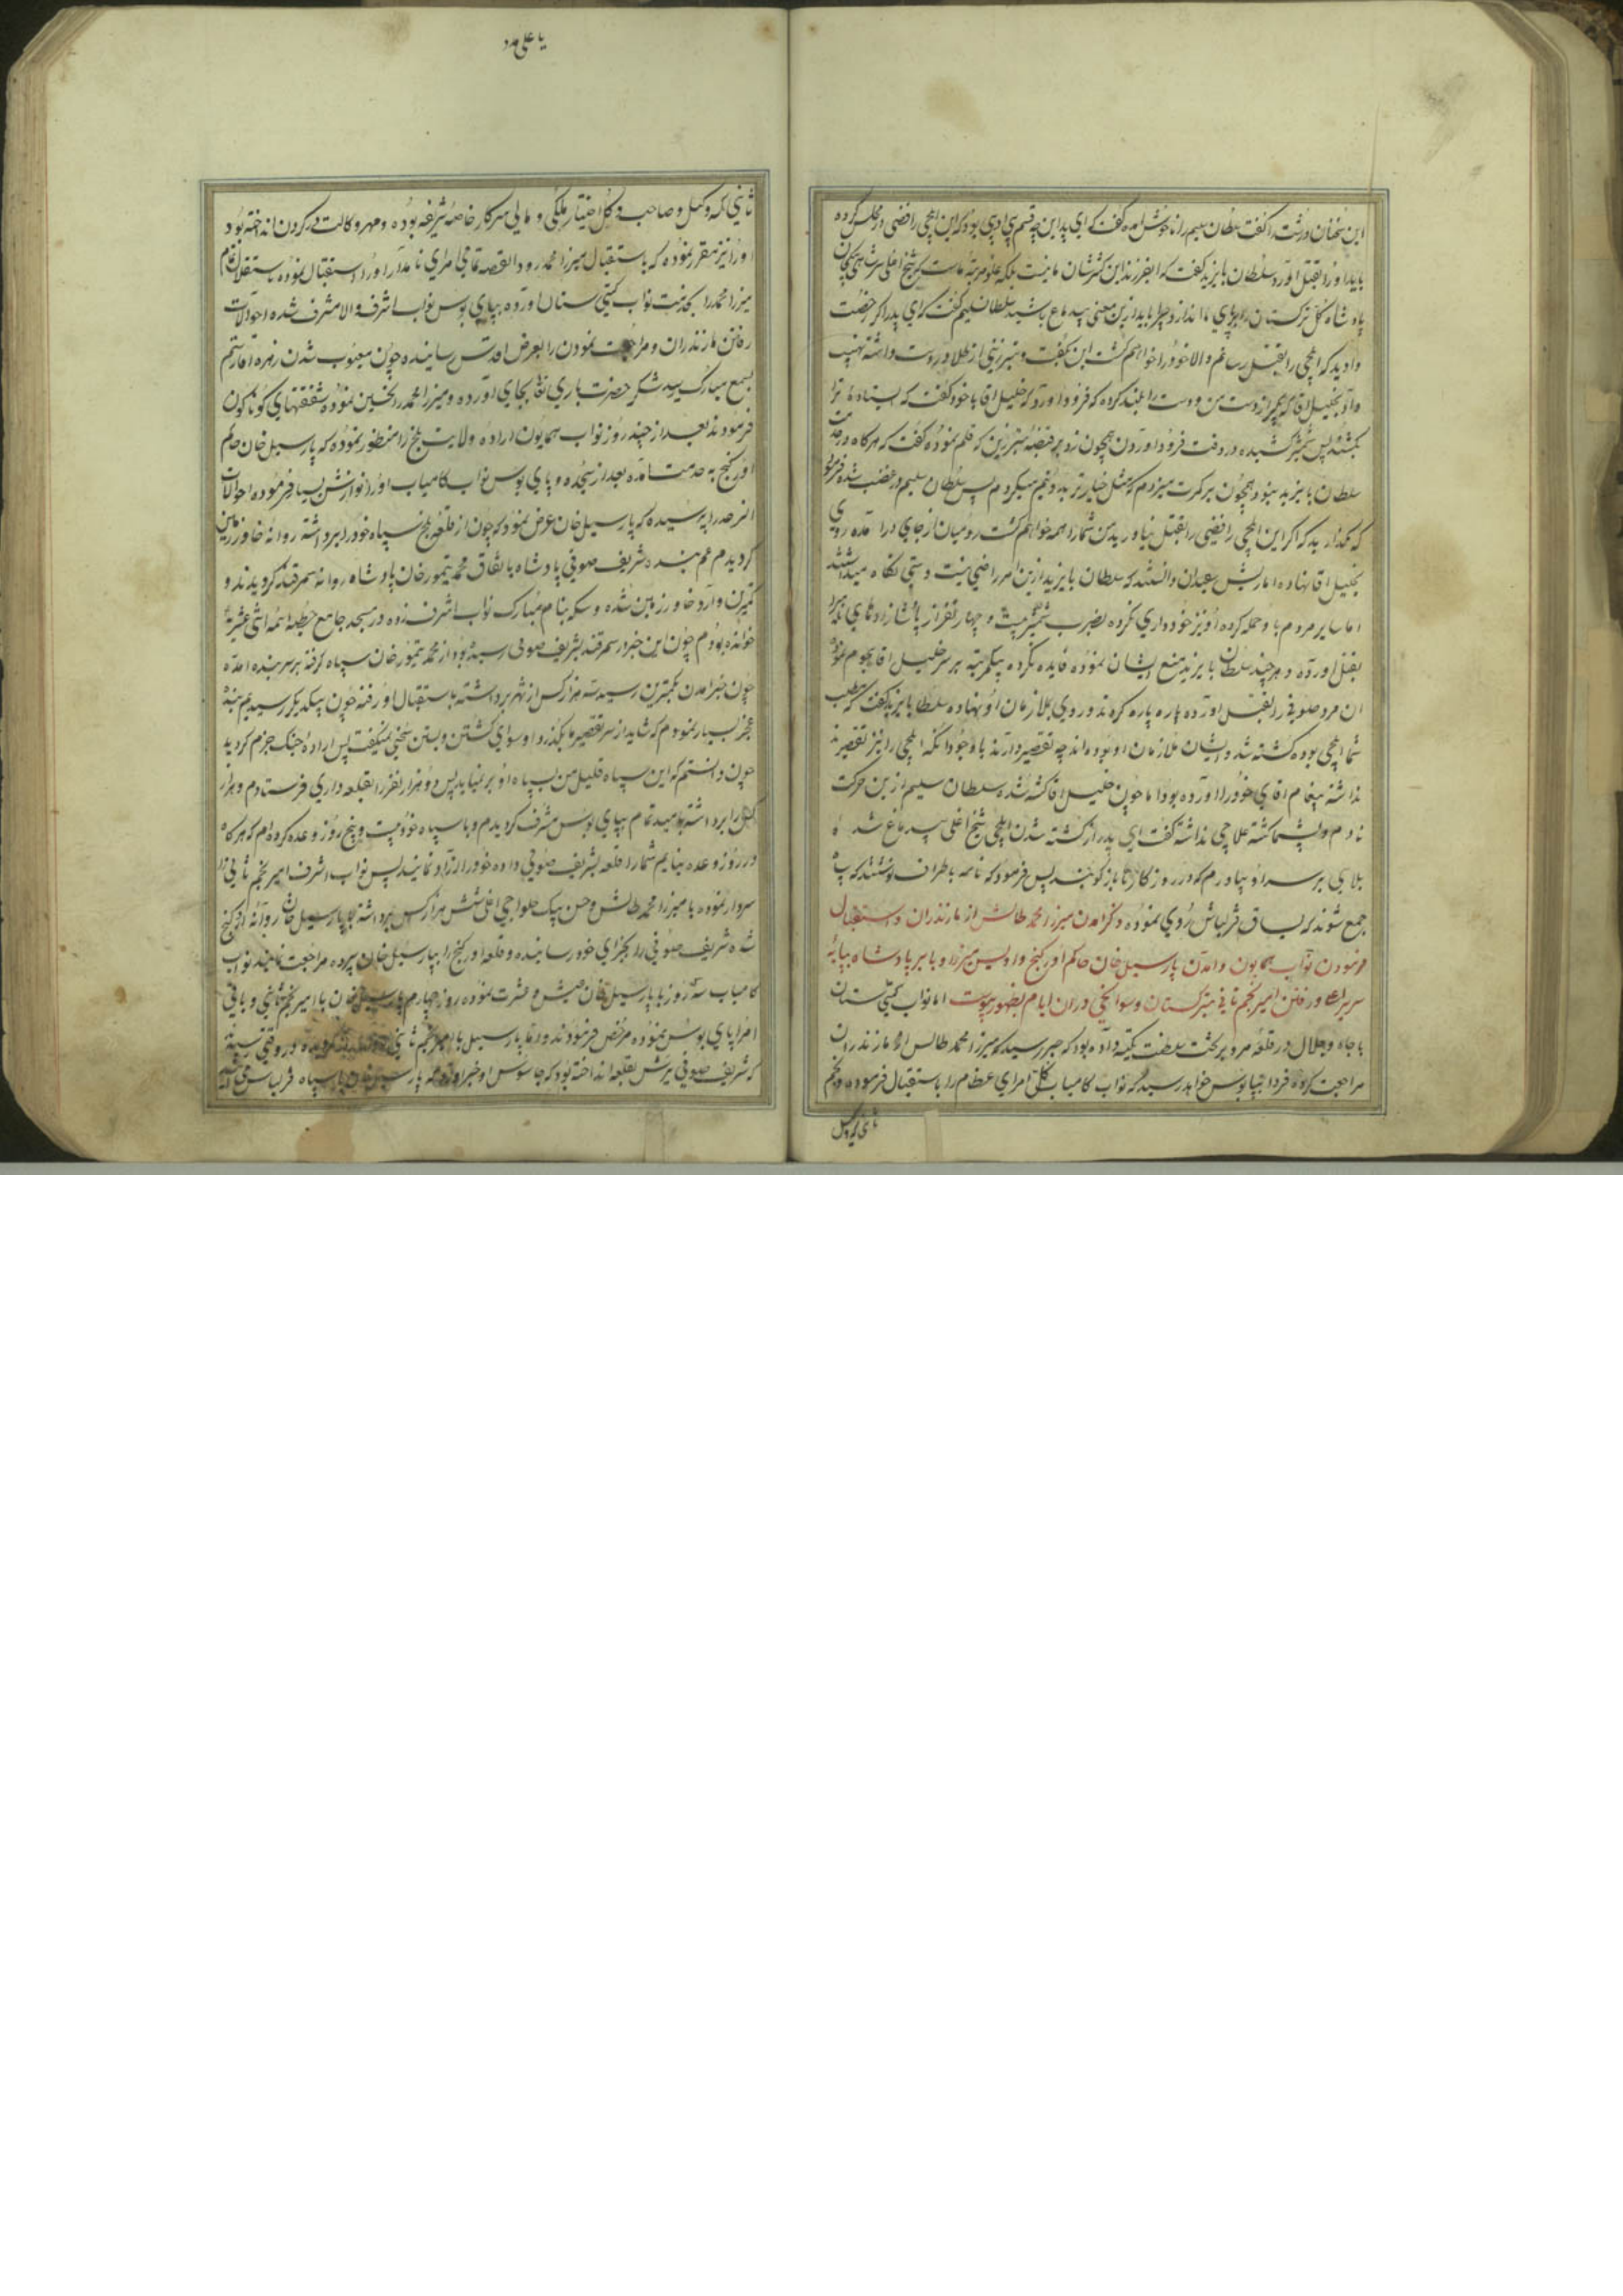 این سخنان درشت را گفت سلطان سلیم را ناخوش آمده گفت که ای پدر این چه قسم بی ادبی بود که این ایلچی رافضی در مجلس کرده
باید او را بقتل آورد سلطان بایزید گفت که ای فرزند این کسر شان ما نیست بلکه علو مرتبه ماست که شیخ اغلی سرشاهی بیک خان
پادشاه کل ترکستان را برای ما انداز چرا باید ازین معنی بیدماغ باشید سلطان سلیم گفت که ای پدر اگر رخصت
دادید که ایلچی را بقتل رسانم والا خود را خواهم کشت این بگفت و تبرزینی از طلا در دست داشته نهیب
داد بخلیل آقا که بگیر از دست من و دست را بلند کرده که فرود آورد که خلیل آقا با خود گفت که ایستاده ترا
بکشد پس شمشیر کشیده در وقت فرود آوردن همچون زد بر قبضه تبرزین که قلم نموده گفت که هرگاه در خدمت
سلطان بایزید نبود همچون بر کمرت میزدم که مثل خیار تر بدو نیم میکردم پس سلطان سلیم در غضب شده فرمود
که مگذارید که اگر این ایلچی رافضی را بقتل نیاورید من شما را همه خواهم کشت رومیان از جای درآمده روی
بخلیل آقا نهاده اما ریش سفیدان دانستند که سلطان بایزید ازین امر راضی نیست دستی نگاه میداشتند
اما سایر مردم باو حمله کرده او نیز خودداری نکرده بضرب شمشیر بیست و چهار نفر از پاشازادهای نامی را
بقتل آورده و هر چند سلطان بایزید منع ایشان نموده فایده نکرده بیکمرتبه بر سر خلیل آقا هجوم نموده
آن مرد صوفی را بقتل آورده پاره پاره کردند و روی بملازمان او نهاده سلطان بایزید گفت که مطلب
شما ایلچی بوده کشته شد و ایشان ملازمان او بوده‌اند چه تقصیر دارند باوجود آنکه ایلچی را نیز تقصیر
نداشته پیغام آقای خود را آورده بود اما چون خلیل آقا کشته شده سلطان سلیم ازین حرکت
نادم و پشیمان گشته علاجی نداشته گفت ای پدر از کشته شدن ایلچی شیخ اغلی بیدماغ شد
بلائی بر سر او بیاورم که در روزگارها باز گویند پس فرمود که نامه باطراف نوشتند که سپاه
جمع شوند که بساق قزلباش روی نموده ذکر آمدن میرزا محمد طالش از مازندران و استقبال
فرمودن نواب همایون و آمدن پارسیل خان حاکم اورکنج و اویس میرزا و بابر پادشاه بپایه
سریر اعلی و رفتن امیر نجم ثانی بترکستان و سوانحی در آن ایام بظهور پیوست اما نواب گیتی ستان
با جاه و جلال در قلعه مرو بر تخت سلطنت تکیه داده بود که خبر رسید که میرزا محمد طالش از مازندران
مراجعت کرده فردا بپابوس خواهد رسید که نواب کامیاب کل امرای عظام را باستقبال فرموده و نجم
ثانی که وکیل
یا علی مدد
ثانی که وکیل و صاحب و کل اختیار ملکی و مالی سرکار خاصه شریفه بوده و مهر وکالت در گردن انداخته بود
او را نیز مقرر نموده که باستقبال میرزا محمد رود القصه تمامی امرای نامدار او را استقبال نموده
میرزا محمد را بخدمت نواب گیتی ستان آورده بپای بوس نواب اشرف والا مشرف شده احوالات
رفتن مازندران و مراجعت نمودن را بعرض اقدس رسانیده چون معیوب شدن زهره آقا رستم
بسمع مبارک رسید شکر حضرت باری تعالی بجای آورده و میرزا محمد را تحسین نموده شفقتهای گوناگون
فرمودند بعد از چند روز نواب همایون اراده ولایت بلخ را منظور نموده که پارسیل خان حاکم
اورکنج به خدمت آمده بعد از سجده و پای بوس نواب کامیاب او را نوازش بسیار فرموده احوالات
آنرا پرسیده که پارسیل خان عرض نمود که چون از قلعه بلخ سپاه خود را برداشته روانه خاور زمین
گردیدم عم بنده شریف صوفی پادشاه باتفاق محمد تیمورخان پادشاه روانه سمرقند گردیدند و
کمترین وارد خاور زمین شده و سکه بنام مبارک نواب اشرف زده در مسجد جامع خطبه ائمه اثنی عشر
خوانده بودم چون این خبر در سمرقند بشریف صوفی رسیده بود از محمد تیمورخان سپاه گرفته بر سر بنده آمده
چون خبر آمدن بکمترین رسید سه هزار کس از شهر برداشته باستقبال او رفته چون بیکدیگر رسیدیم بنده
عجز بسیار نمودم که شاید از سر تقصیر ما بگذرد او سوای کشتن و بستن سخنی نمیگفت پس اراده جنگ جزم گردید
چون دانستم که این سپاه قلیل من بسپاه او بر نیاید پس دو هزار نفر را بقلعه داری فرستادم و هزار
کس را برداشته بامید تمام بپای بوس مشرف گردیدم و با سپاه خود بیست و پنج روز وعده کرده‌ام که هرگاه
در روز وعده نیایم شما را قلعه بشریف صوفی داده خود را آزاد نمایند پس نواب اشرف امیر نجم ثانی را
سردار نموده با میرزا محمد طالش و حسن بیک حلواچی اغلی شش هزار کس برداشته با پارسیل خان روانه اورکنج
شده شریف صوفی را بجزای خود رسانیده و قلعه اورکنج را بپارسیل خان سپرده مراجعت نمایند نواب
کامیاب سه روز با پارسیل خان عیش و عشرت نموده روز چهارم پارسیل خان با امیر نجم ثانی و باقی
امرا پای بوس نموده مرخص فرمودند و اما پارسیل با امیر نجم ثانی در وقتی رسید
که شریف صوفی یرش بقلعه انداخته بود که جاسوس او خبر آورد که پارسیل خان با سپاه قزلباش می‌آید